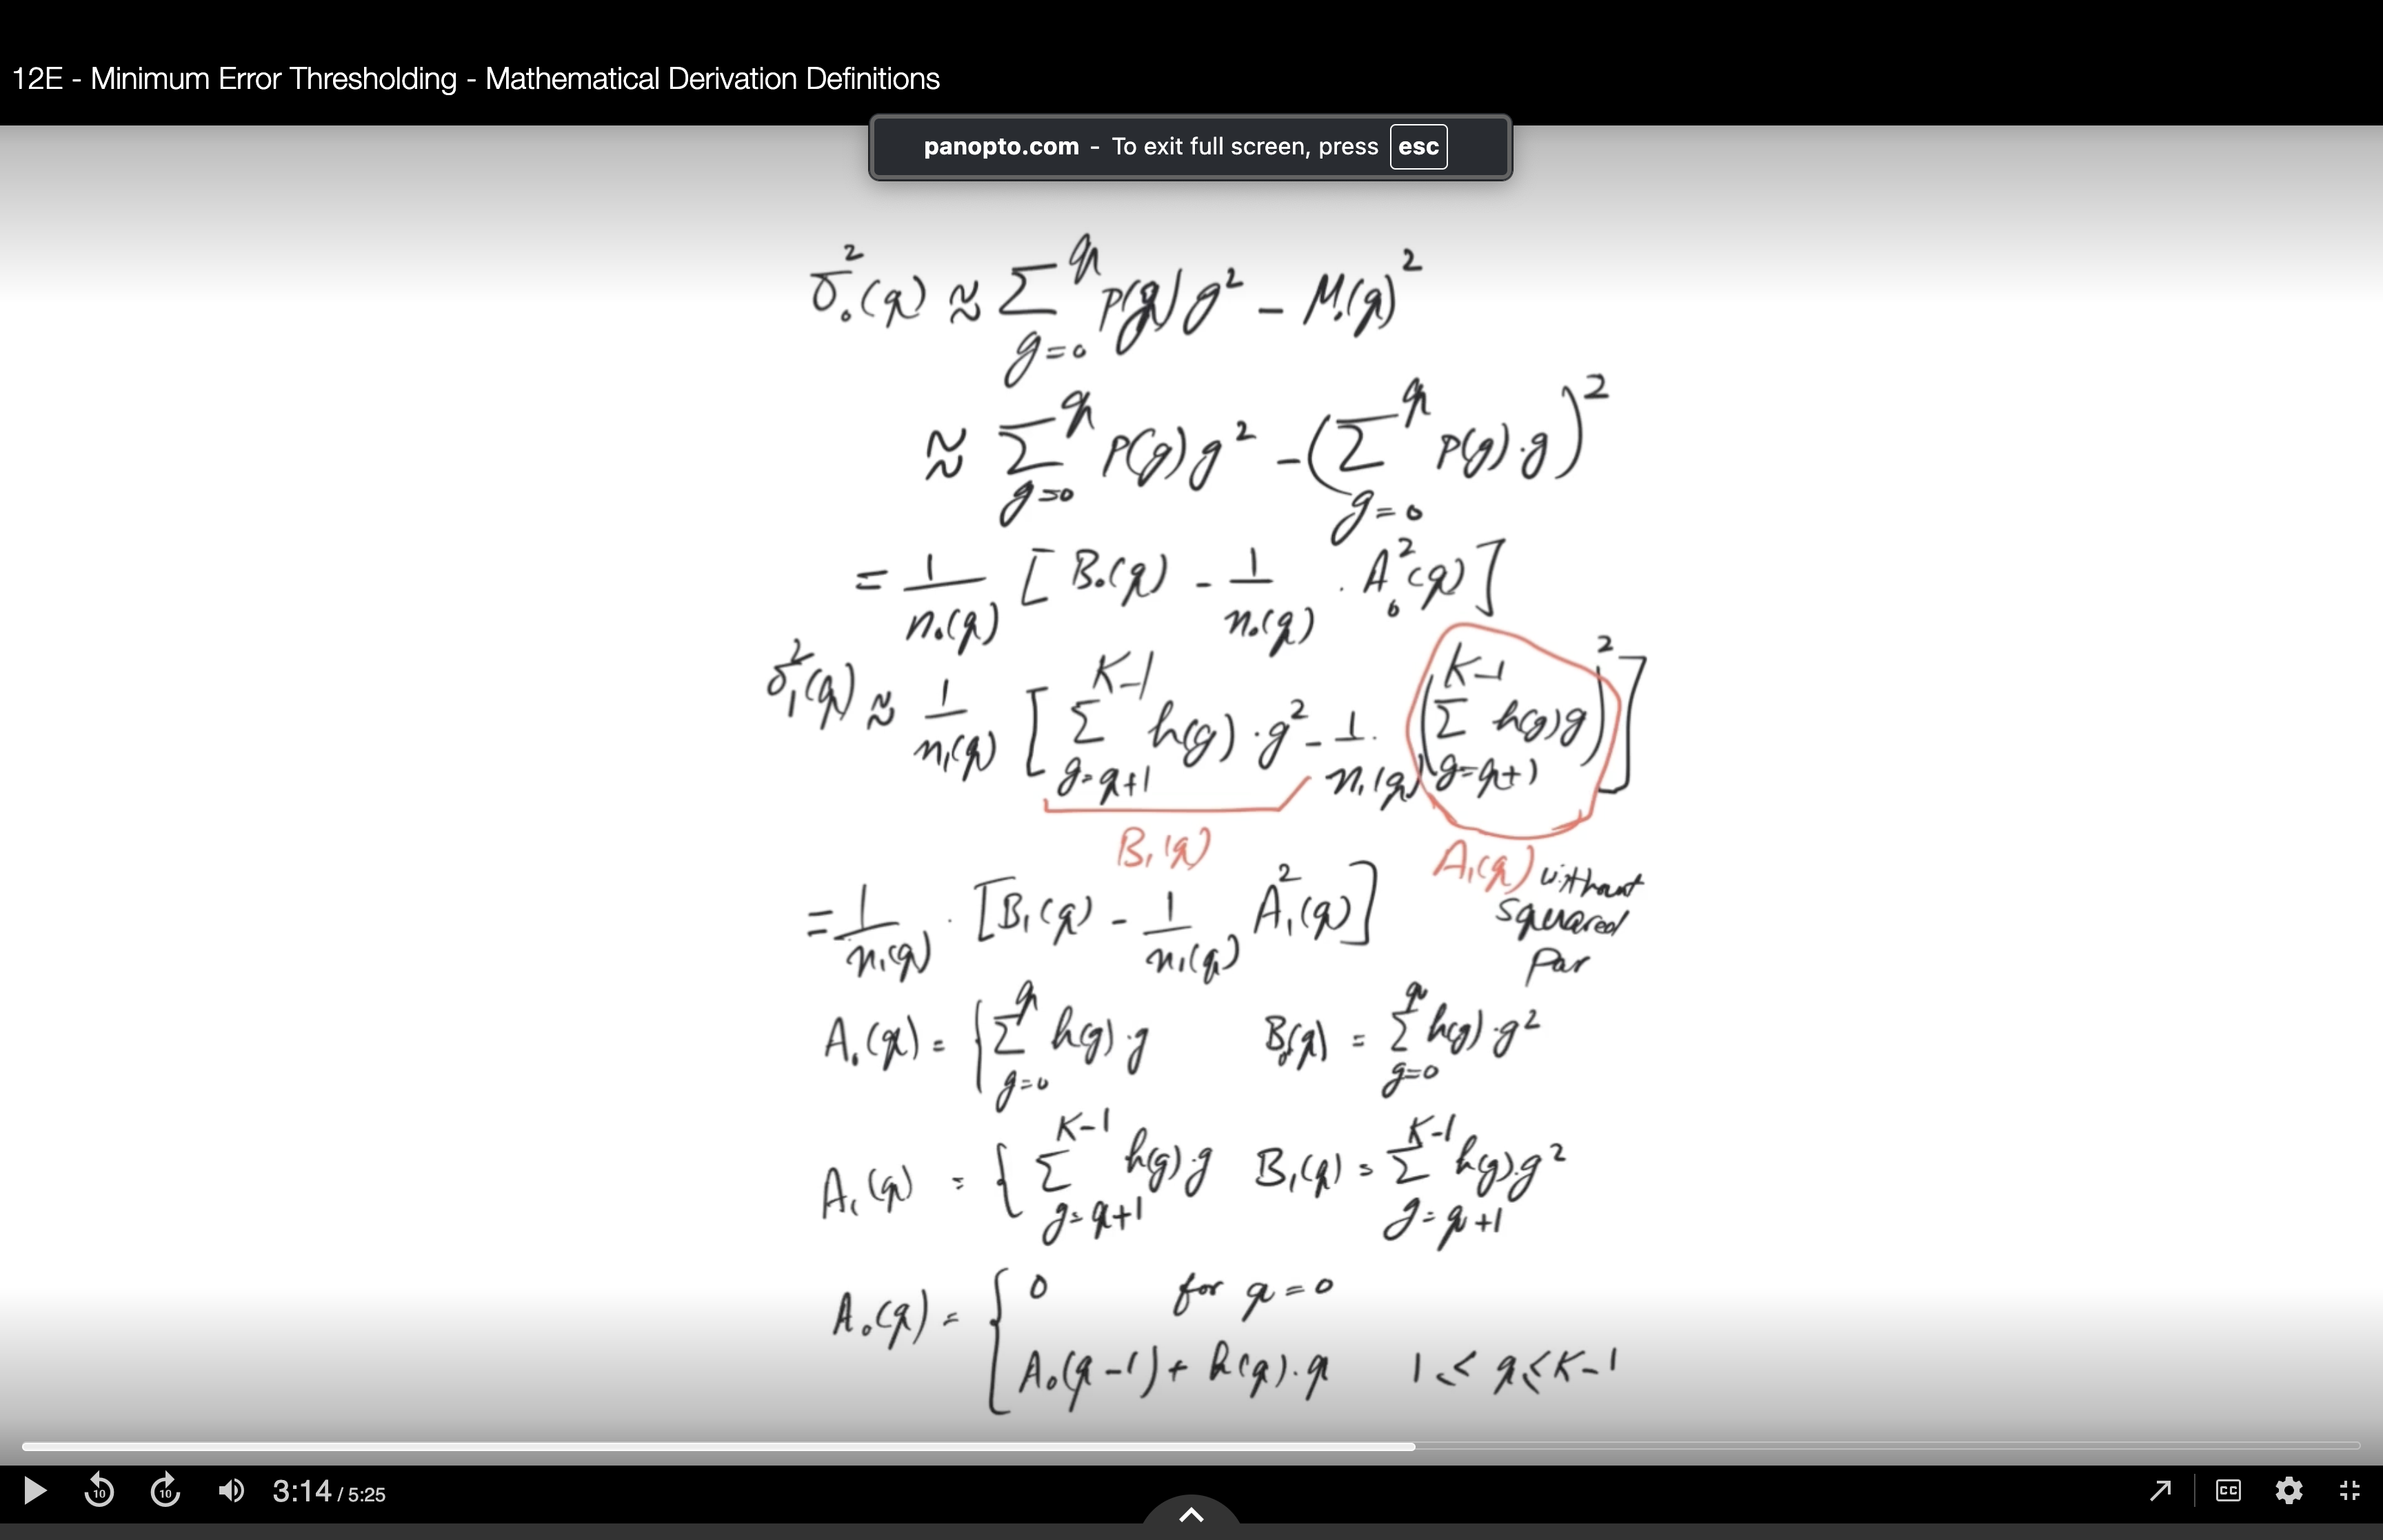 12E - Minimum Error Thresholding - Mathematical Derivation Definitions
panopto.com - To exit full screen, press esc
σ₀²(q) ≈ Σ_{g=0}^{q} P(g) g² - M₀(q)²
≈ Σ_{g=0}^{q} P(g) g² - (Σ_{g=0}^{q} P(g)·g)²
= 1/n₀(q) [B₀(q) - 1/n₀(q) · A₀²(q)]
σ₁²(q) ≈ 1/n₁(q) [Σ_{g=q+1}^{K-1} h(g)·g² - 1/n₁(q) · (Σ_{g=q+1}^{K-1} h(g)g)²]
B₁(q) A₁(q) without squared Par
= 1/n₁(q) · [B₁(q) - 1/n₁(q) A₁²(q)]
A₀(q) = { Σ_{g=0}^{q} h(g)·g B₀(q) = Σ_{g=0}^{q} h(g)·g²
A₁(q) = { Σ_{g=q+1}^{K-1} h(g)·g B₁(q) = Σ_{g=q+1}^{K-1} h(g)·g²
A₀(q) = { 0 for q = 0
A₀(q-1) + h(q)·q 1 ≤ q ≤ K-1
10 10 3:14 / 5:25 CC